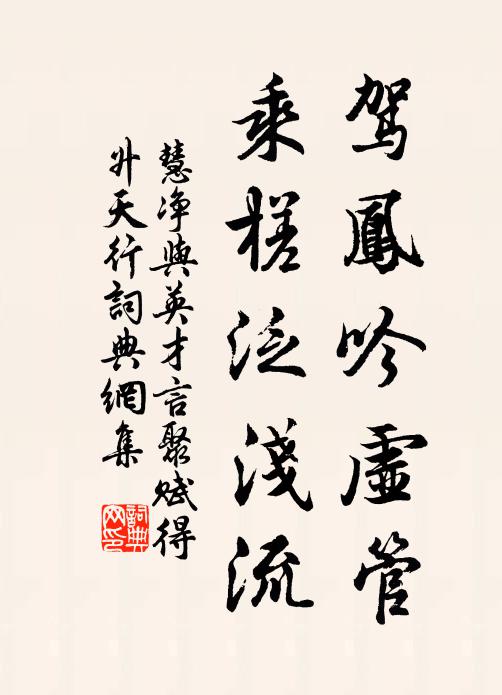 駕鳳吟虛管
乘槎泛淺流
慧净與英才言聚賦得
升天行詞典網集
詞典網印